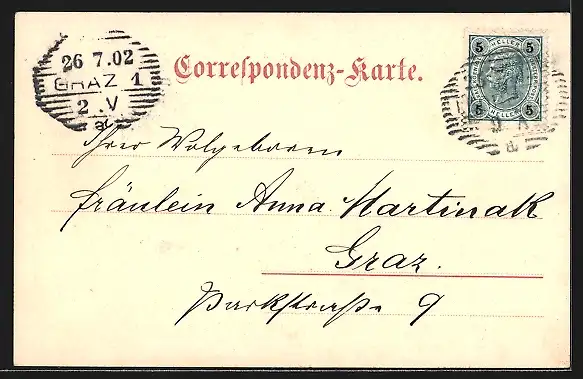 26 7.02
GRAZ 1
2 .V
a
Correspondenz-Karte.
5 HELLER 5
5 HELLER 5
Ihrer Wolgeboren
Fräulein Anna Martinak
Graz.
Parkstraße 9